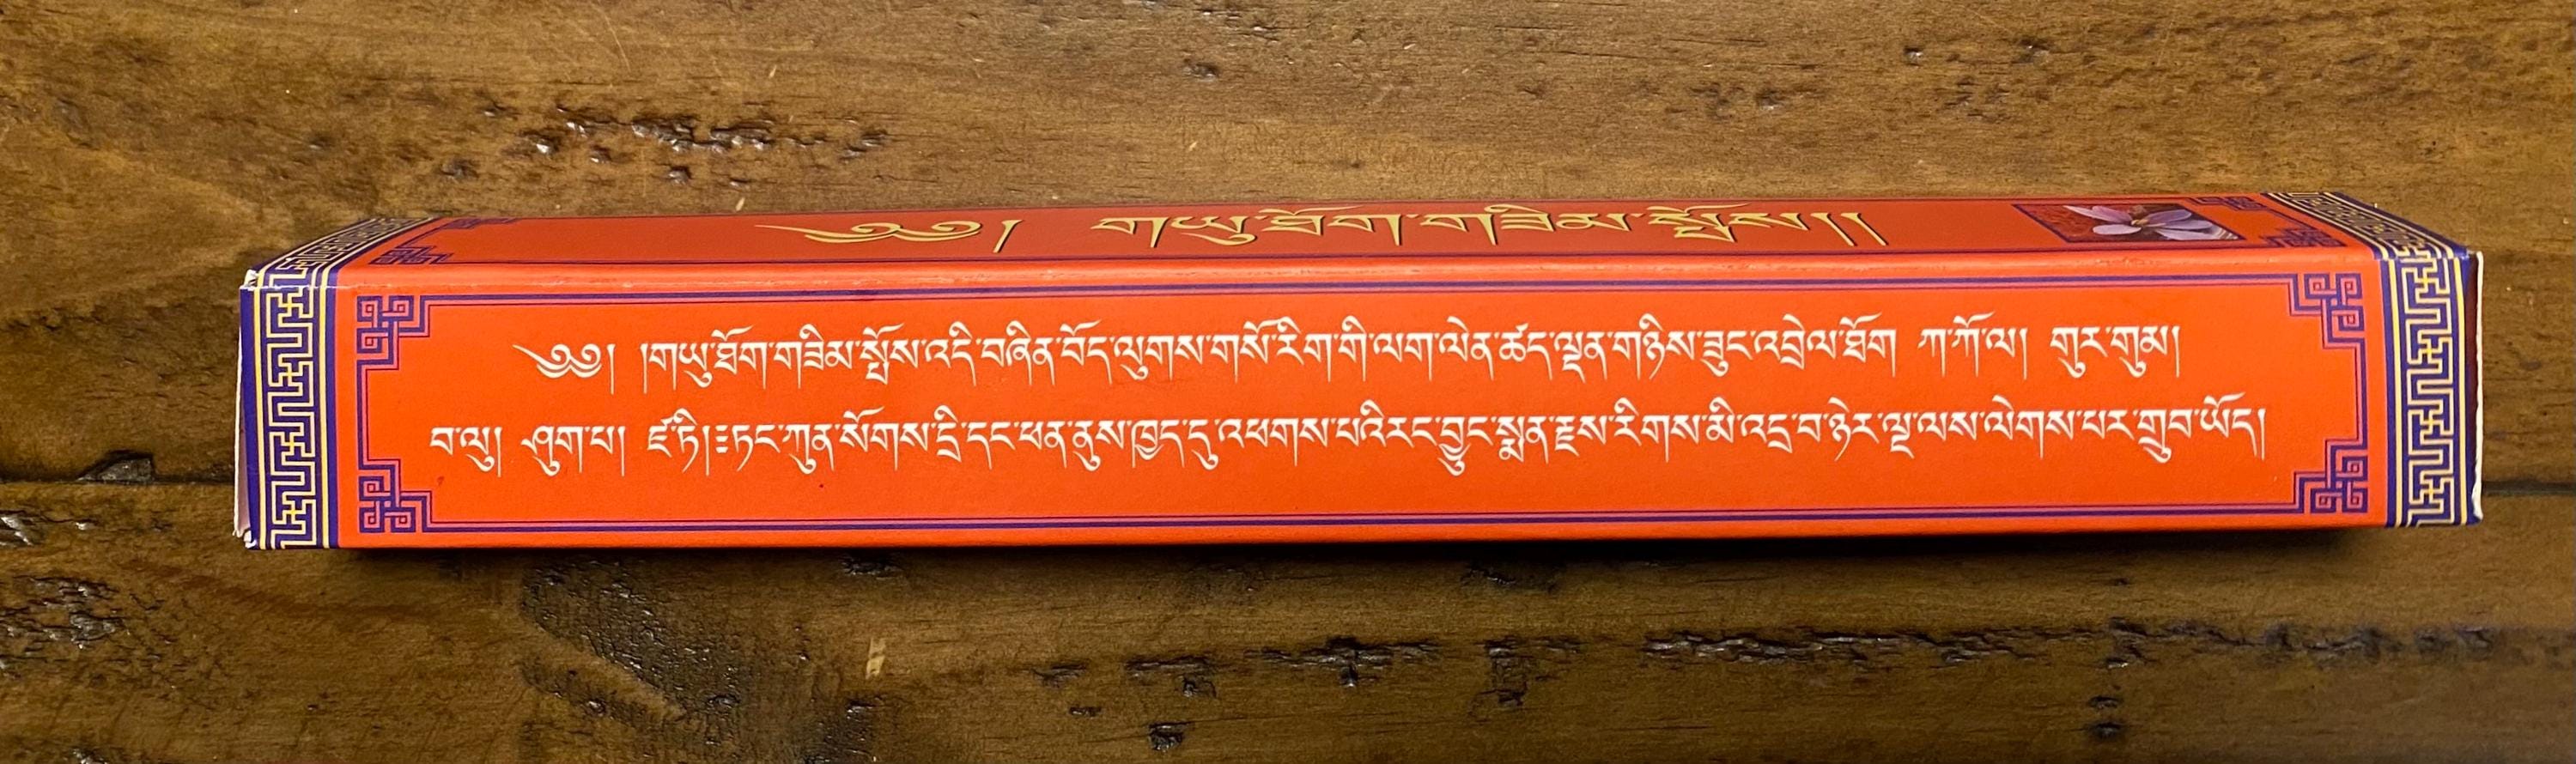 ༄༅། གཡུ་ཐོག་གཟིམ་སྤོས།།
༄༅། །གཡུ་ཐོག་གཟིམ་སྤོས་འདི་བཞིན་བོད་ལུགས་གསོ་རིག་གི་ལག་ལེན་ཚད་ལྡན་གཉིས་ཟུང་འབྲེལ་ཐོག ཀ་ཀོ་ལ། གུར་གུམ།
བ་ལུ། ཤུག་པ། ཛ་ཏི། ཏང་ཀུན་སོགས་དྲི་དང་ཕན་ནུས་ཁྱད་དུ་འཕགས་པའི་རང་བྱུང་སྨན་རྫས་རིགས་མི་འདྲ་བ་ཉེར་ལྔ་ལས་ལེགས་པར་གྲུབ་ཡོད།